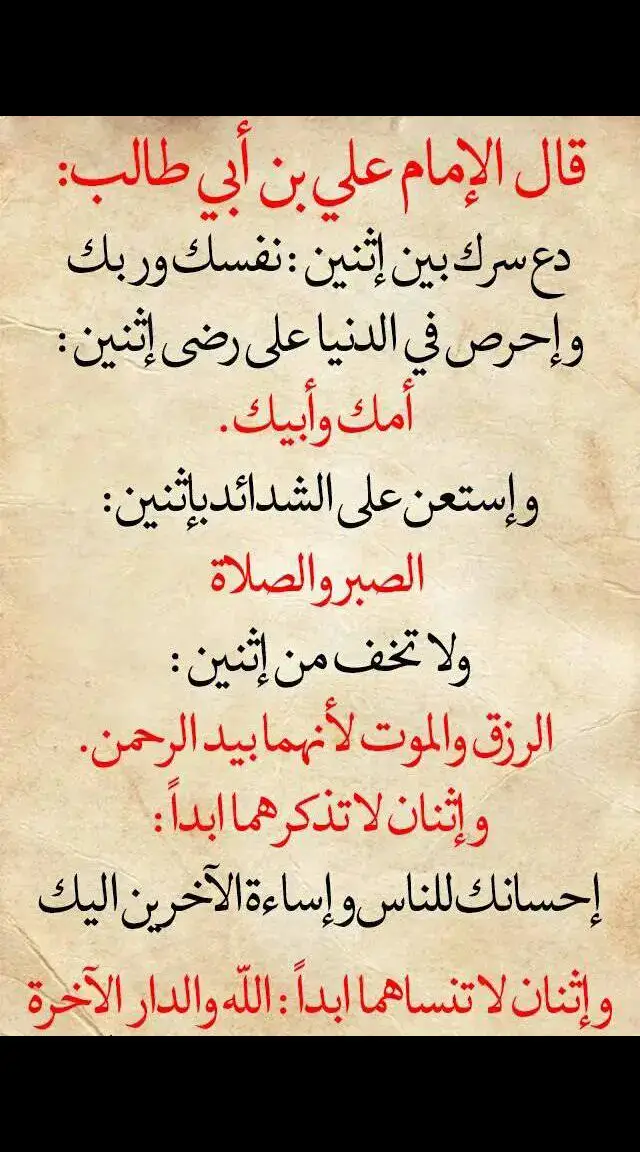 قال الإمام علي بن أبي طالب:
دع سرك بين إثنين : نفسك وربك
وإحرص في الدنيا على رضى إثنين :
أمك وأبيك.
وإستعن على الشدائد بإثنين:
الصبر والصلاة
ولا تخف من إثنين :
الرزق والموت لأنهما بيد الرحمن.
وإثنان لا تذكرهما ابداً :
إحسانك للناس وإساءة الآخرين اليك
وإثنان لا تنساهما ابداً : الله والدار الآخرة